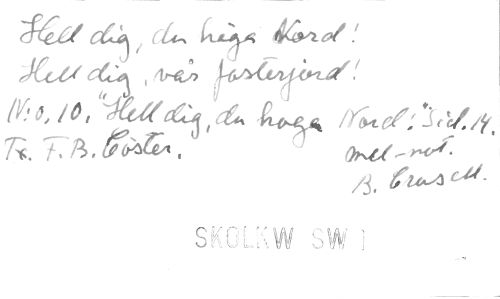 Hell dig, du höga Nord!
Hell dig, vår fosterjord!
N:o, 10. "Hell dig, du höga Nord!" Sid. 14.
Tx. F. B. Cöster.
mel-not.
B. Crusell.
SKOLKW SW 1